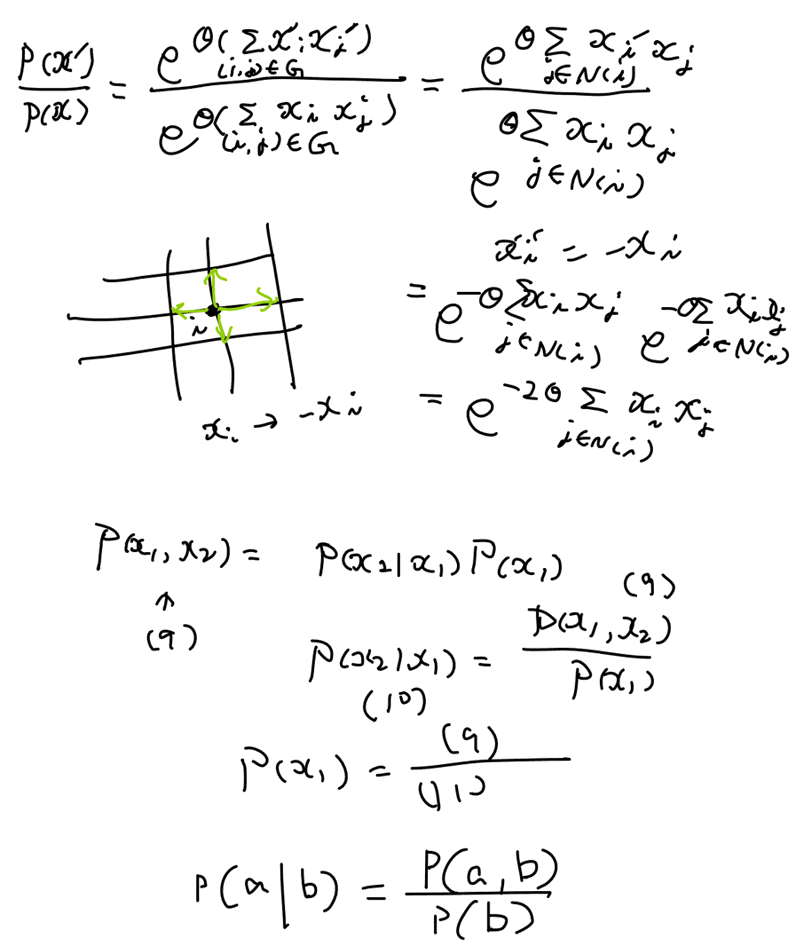 P(x')/P(x) = e^{θ(Σ_{(i,j)∈G} x'_i x'_j)} / e^{θ(Σ_{(i,j)∈G} x_i x_j)} = e^{θ Σ_{j∈N(i)} x_i' x_j} / e^{θ Σ_{j∈N(i)} x_i x_j}
x_i' = -x_i
= e^{-θ Σ_{j∈N(i)} x_i x_j} e^{-θ Σ_{j∈N(i)} x_i x_j}
i
x_i → -x_i
= e^{-2θ Σ_{j∈N(i)} x_i x_j}
P(x_1, x_2) = P(x_2|x_1) P(x_1) (9)
↑
(9)
P(x_2|x_1) = P(x_1, x_2) / P(x_1)
(10)
P(x_1) = (9) /
P(a|b) = P(a, b) / P(b)